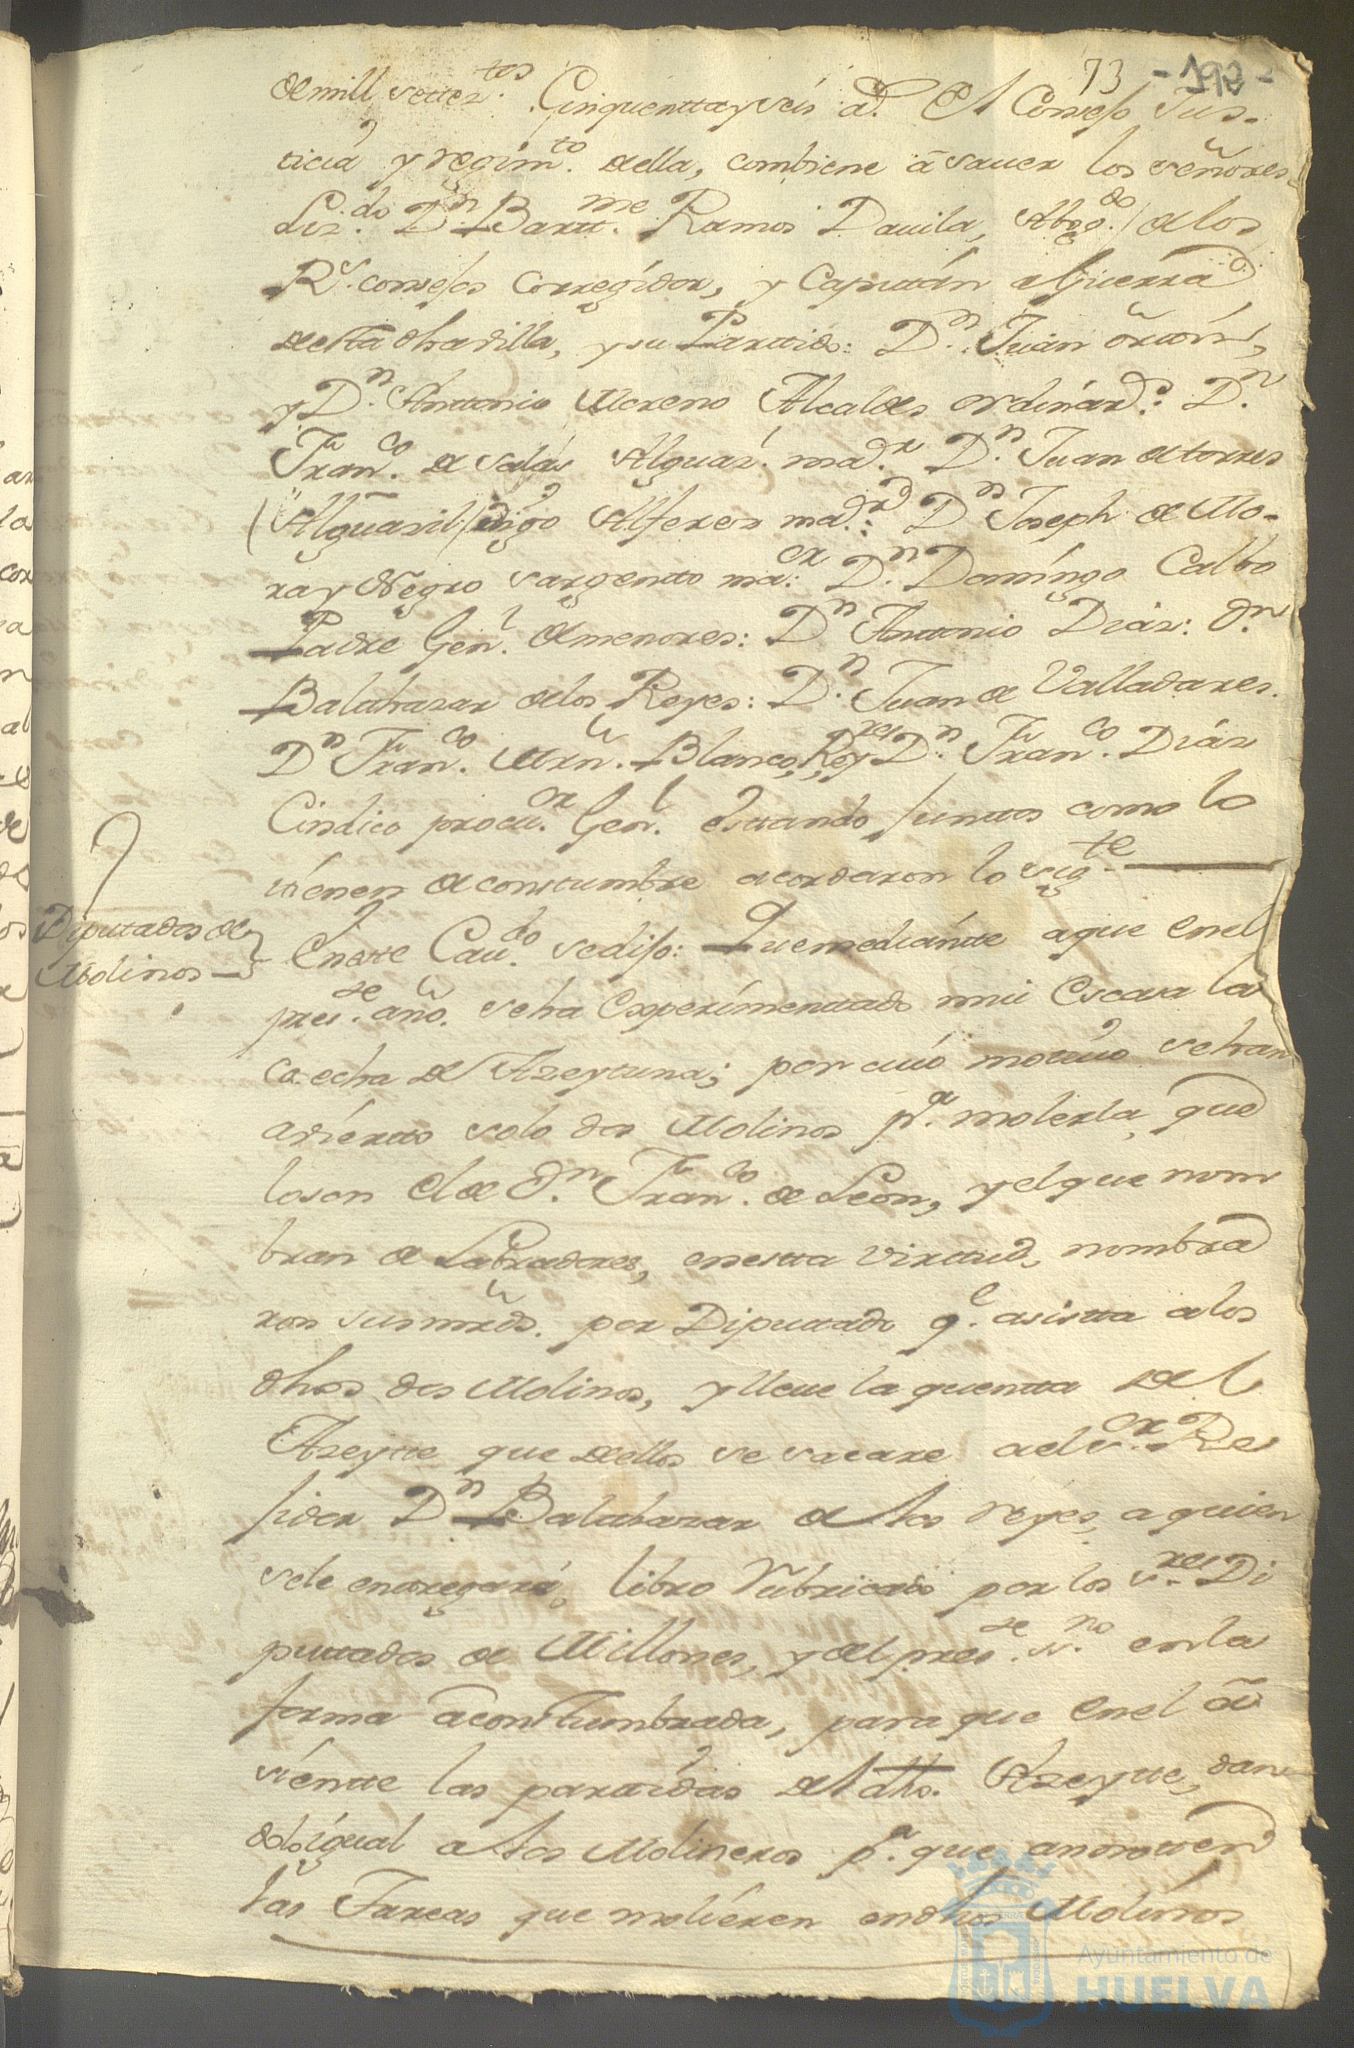 73 -192-
de mill settez.tos Cinquentta y seis a.s El Consejo Jus-
ticia y regim.to della, combiene â saver los señores
Liz.do D.n Bartt.me Ramos Davila, Abog.do de los
R.s consejos Corregidor, y Capittán a Guerra
desta dha villa, y su Parttido: D.n Juan
y D.n Anttonio Moreno Alcaldes ordinar.s: D.n
Fran.co de Salas Alguaz.l ma.r D.n Juan de torres
(Alguazil) digo Alferes ma.r: D.n Joseph de Mo-
ra y Negro sargentto ma.or: D.n Domingo Calbo
Padre Gen.l de menores: D.n Anttonio Diaz: D.n
Balthazar de los Reyes: D.n Juan de Valladares.
D.n Fran.co Mrn. Blanco, Rexres D.n Fran.co Diáz
Cindico procu.or Gen.l esttando junttos como lo
tienen de constumbre acordaron lo sig.te
Diputados de
Molinos
En este Cau.do se dijo: Que mediántte a que en el
pres.te año. se ha Experimenttado mui Escasa la
coxecha de Azeytuna; por cuio mottivo se han
aviertto solo dos Molinos p.a molerla, que
lo son el de D.n Fran.co de Leon, y el que nom
bran de Labradores, en esta virttud, nombra
ron sus mrds. por Diputtado q.e asistta a los
dhos dos Molinos, y lleve la quentta del
Azeytte que dellos se sacare a el s.or Re
jidor D.n Balthazar de los reyes, a quien
se le entregará, libro rubricado por los s.res Di
puttados de Millones, y del pres.te ss.no en la
forma acostumbrada, para que en el a
sientte las parttidas del dho. Azeytte, dan
dolo igual a los Molineros p.a que anotten
las Tareas que moliéren en dhos Molinos
Ayuntamiento de
HUELVA